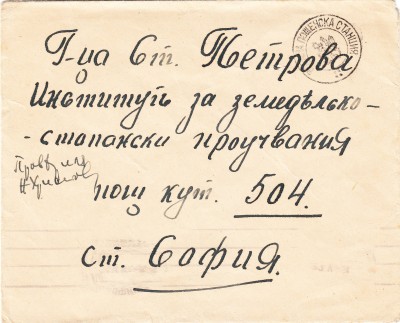 Г-ца Ст. Петрова
Институтъ за земедѣлско-
-стопански проучвания
пощ кут. 504.
ст. София.
ПОЩЕНСКА СТАНЦИЯ